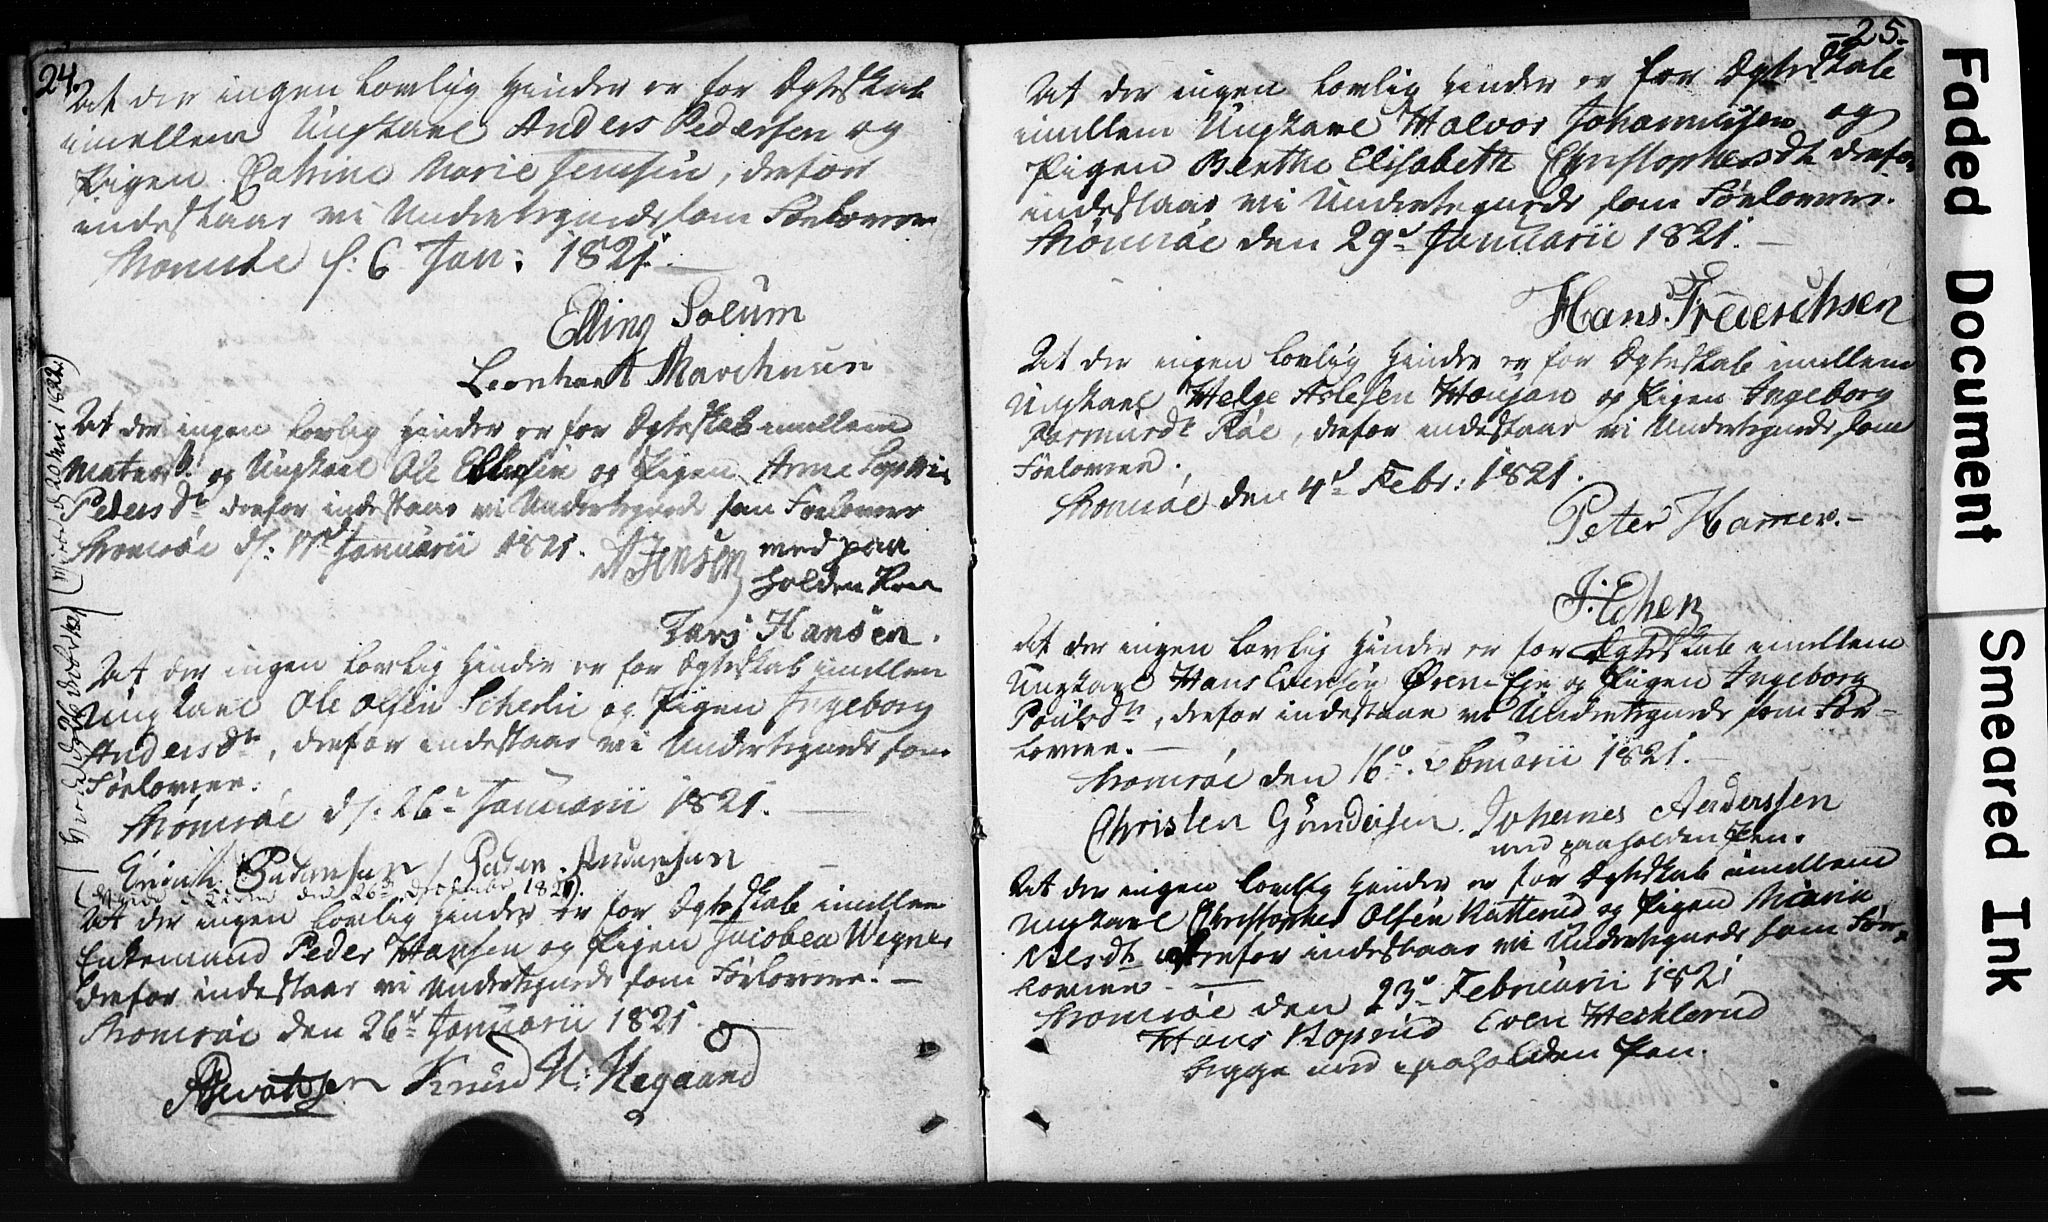 24.
At der ingen lovlig Hinder er for Ægteskab
imellem Ungkarl Anders Pedersen og
Pigen Catrine Marie Jensen, derfor
indestaar vi Undertegnede som Forlovere
Strømsøe d: 6 Jan: 1821. —
Elling Solum
Leonhart Marthinusen
At der ingen lovlig Hinder er for Ægteskab imellem
og Ungkarl Ole Ellefsen og Pigen Anne Sophie
Pedersdtr derfor indestaar vi Undertegnede som Forlovere
Strømsøe d: Januarii 1821.
Jensen
med paa
holden Pen
Lars Hansen.
At der ingen lovlig Hinder er for Ægteskab imellem
Ungkarl Ole Olsen og Pigen Ingeborg
Andersdtr, derfor indestaar vi Undertegnede som
Forlovere.
Strømsøe d: 26de Januarii 1821. —
Pedersen Peder Andersen
26de 1821.
At der ingen lovlig Hinder er for Ægteskab imellem
Enkemand Peder Hansen og Pigen Jacobea Wegner
derfor indestaar vi Undertegnede som Forlovere. —
Strømsøe den 26de Januarii 1821.
Knud N: Negaard
-25-
At der ingen lovlig Hinder er for Ægteskab
imellem Ungkarl Halvor Johannesen og
Pigen Berthe Elisabeth Christophersdtr derfor
indestaar vi Undertegnede som Forlovere.
Strømsøe den 29de Januarii 1821. —
Hans Frederchsen
At der ingen lovlig Hinder er for Ægteskab imellem
Ungkarl Helge Aslesen Houjan og Pigen Ingeborg
Rasmusdtr Røe, derfor indestaar vi Undertegnede som
Forlovere.
Strømsøe den 4de Febr: 1821.
Peter Hamer. —
At der ingen lovlig Hinder er for Ægteskab imellem
Ungkarl Hans Evensen Øren-Eje og Pigen Ingeborg
Poulsdtr, derfor indestaar vi Undertegnede som For-
lovere. —
Strømsøe den 16de Februarii 1821. —
Christen Gundersen. Johannes Anderssen
med paaholden Pen.
At der ingen lovlig Hinder er for Ægteskab imellem
Ungkarl Christopher Olsen Ratterud og Pigen Maria
Nielsdtr derfor indestaar vi Undertegnede som For-
lovere. —
Strømsøe den 23de Februarii 1821
Hans Roprud Even Heklerud
begge med paaholden Pen.
Faded Document
Smeared Ink